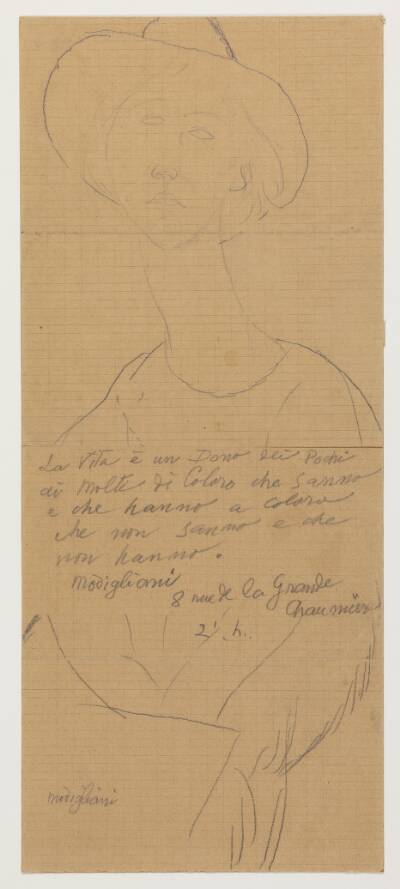 La Vita è un Dono dei Pochi
di Molti di Coloro che Sanno
e che hanno a coloro
che non Sanno e che
non hanno.
Modigliani
8 rue de la Grande
Chaumière
modigliani